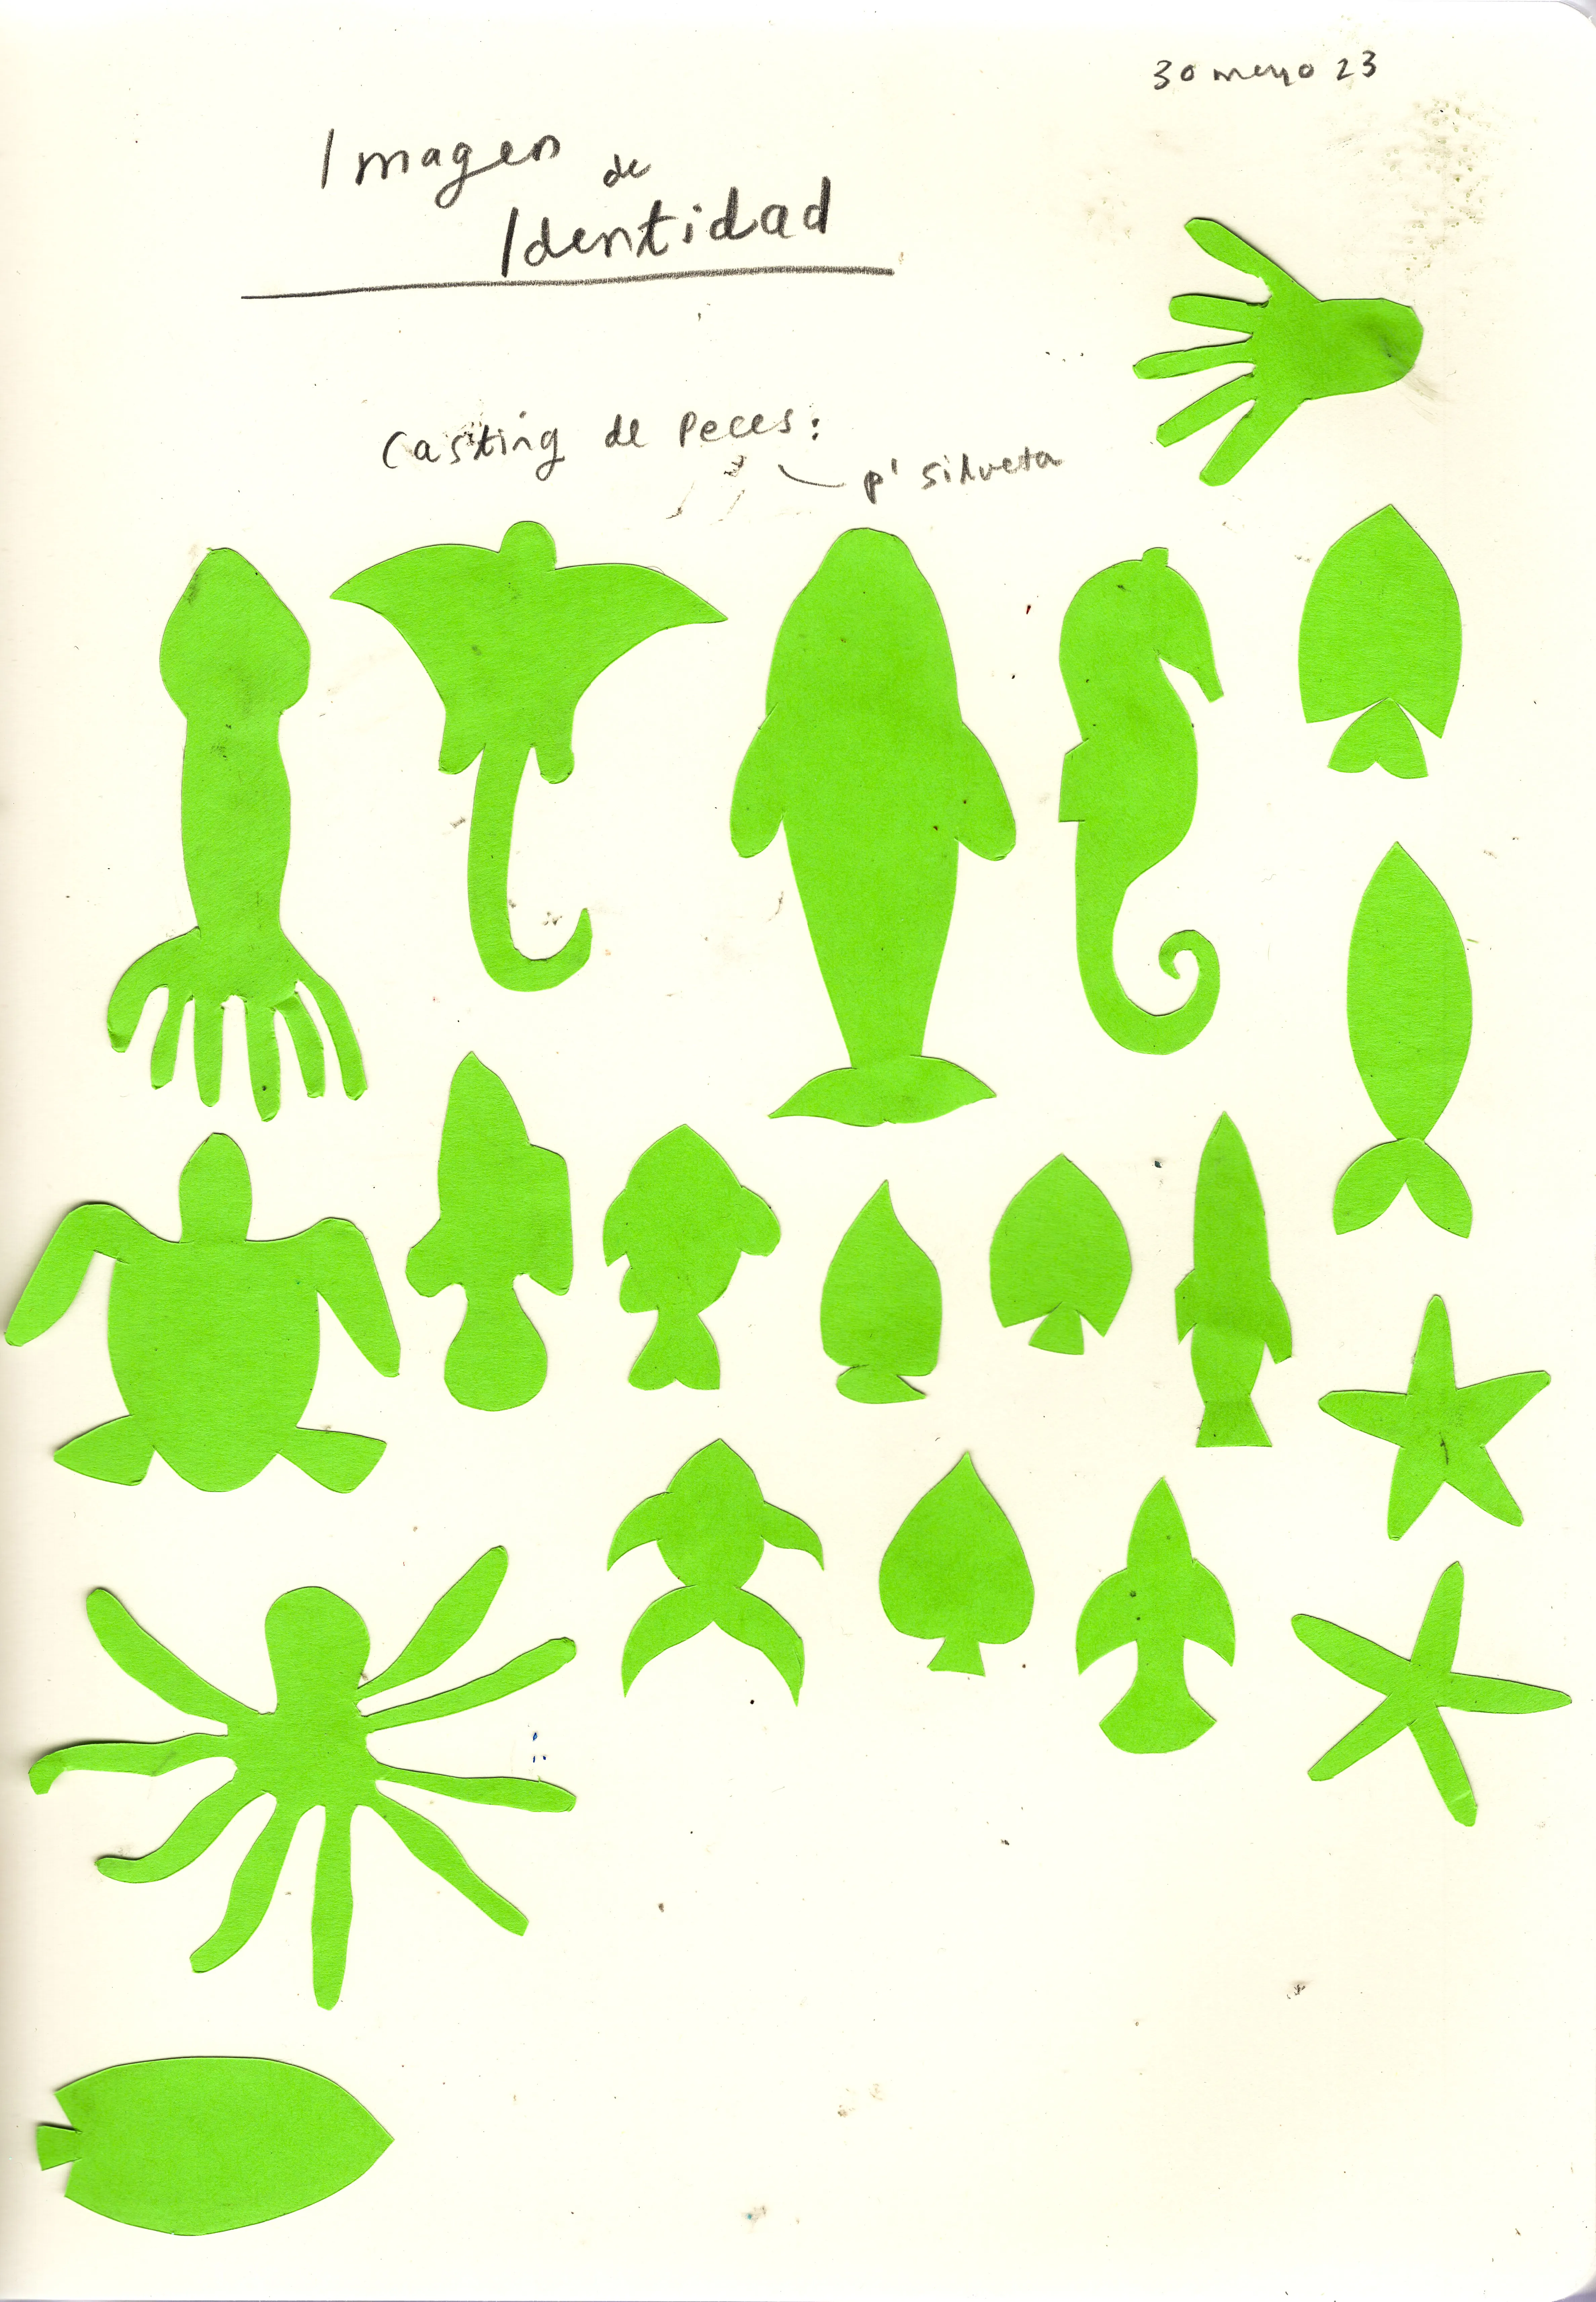 30 mayo 23
Imagen
de
Identidad
Casting de Peces:
p' silueta